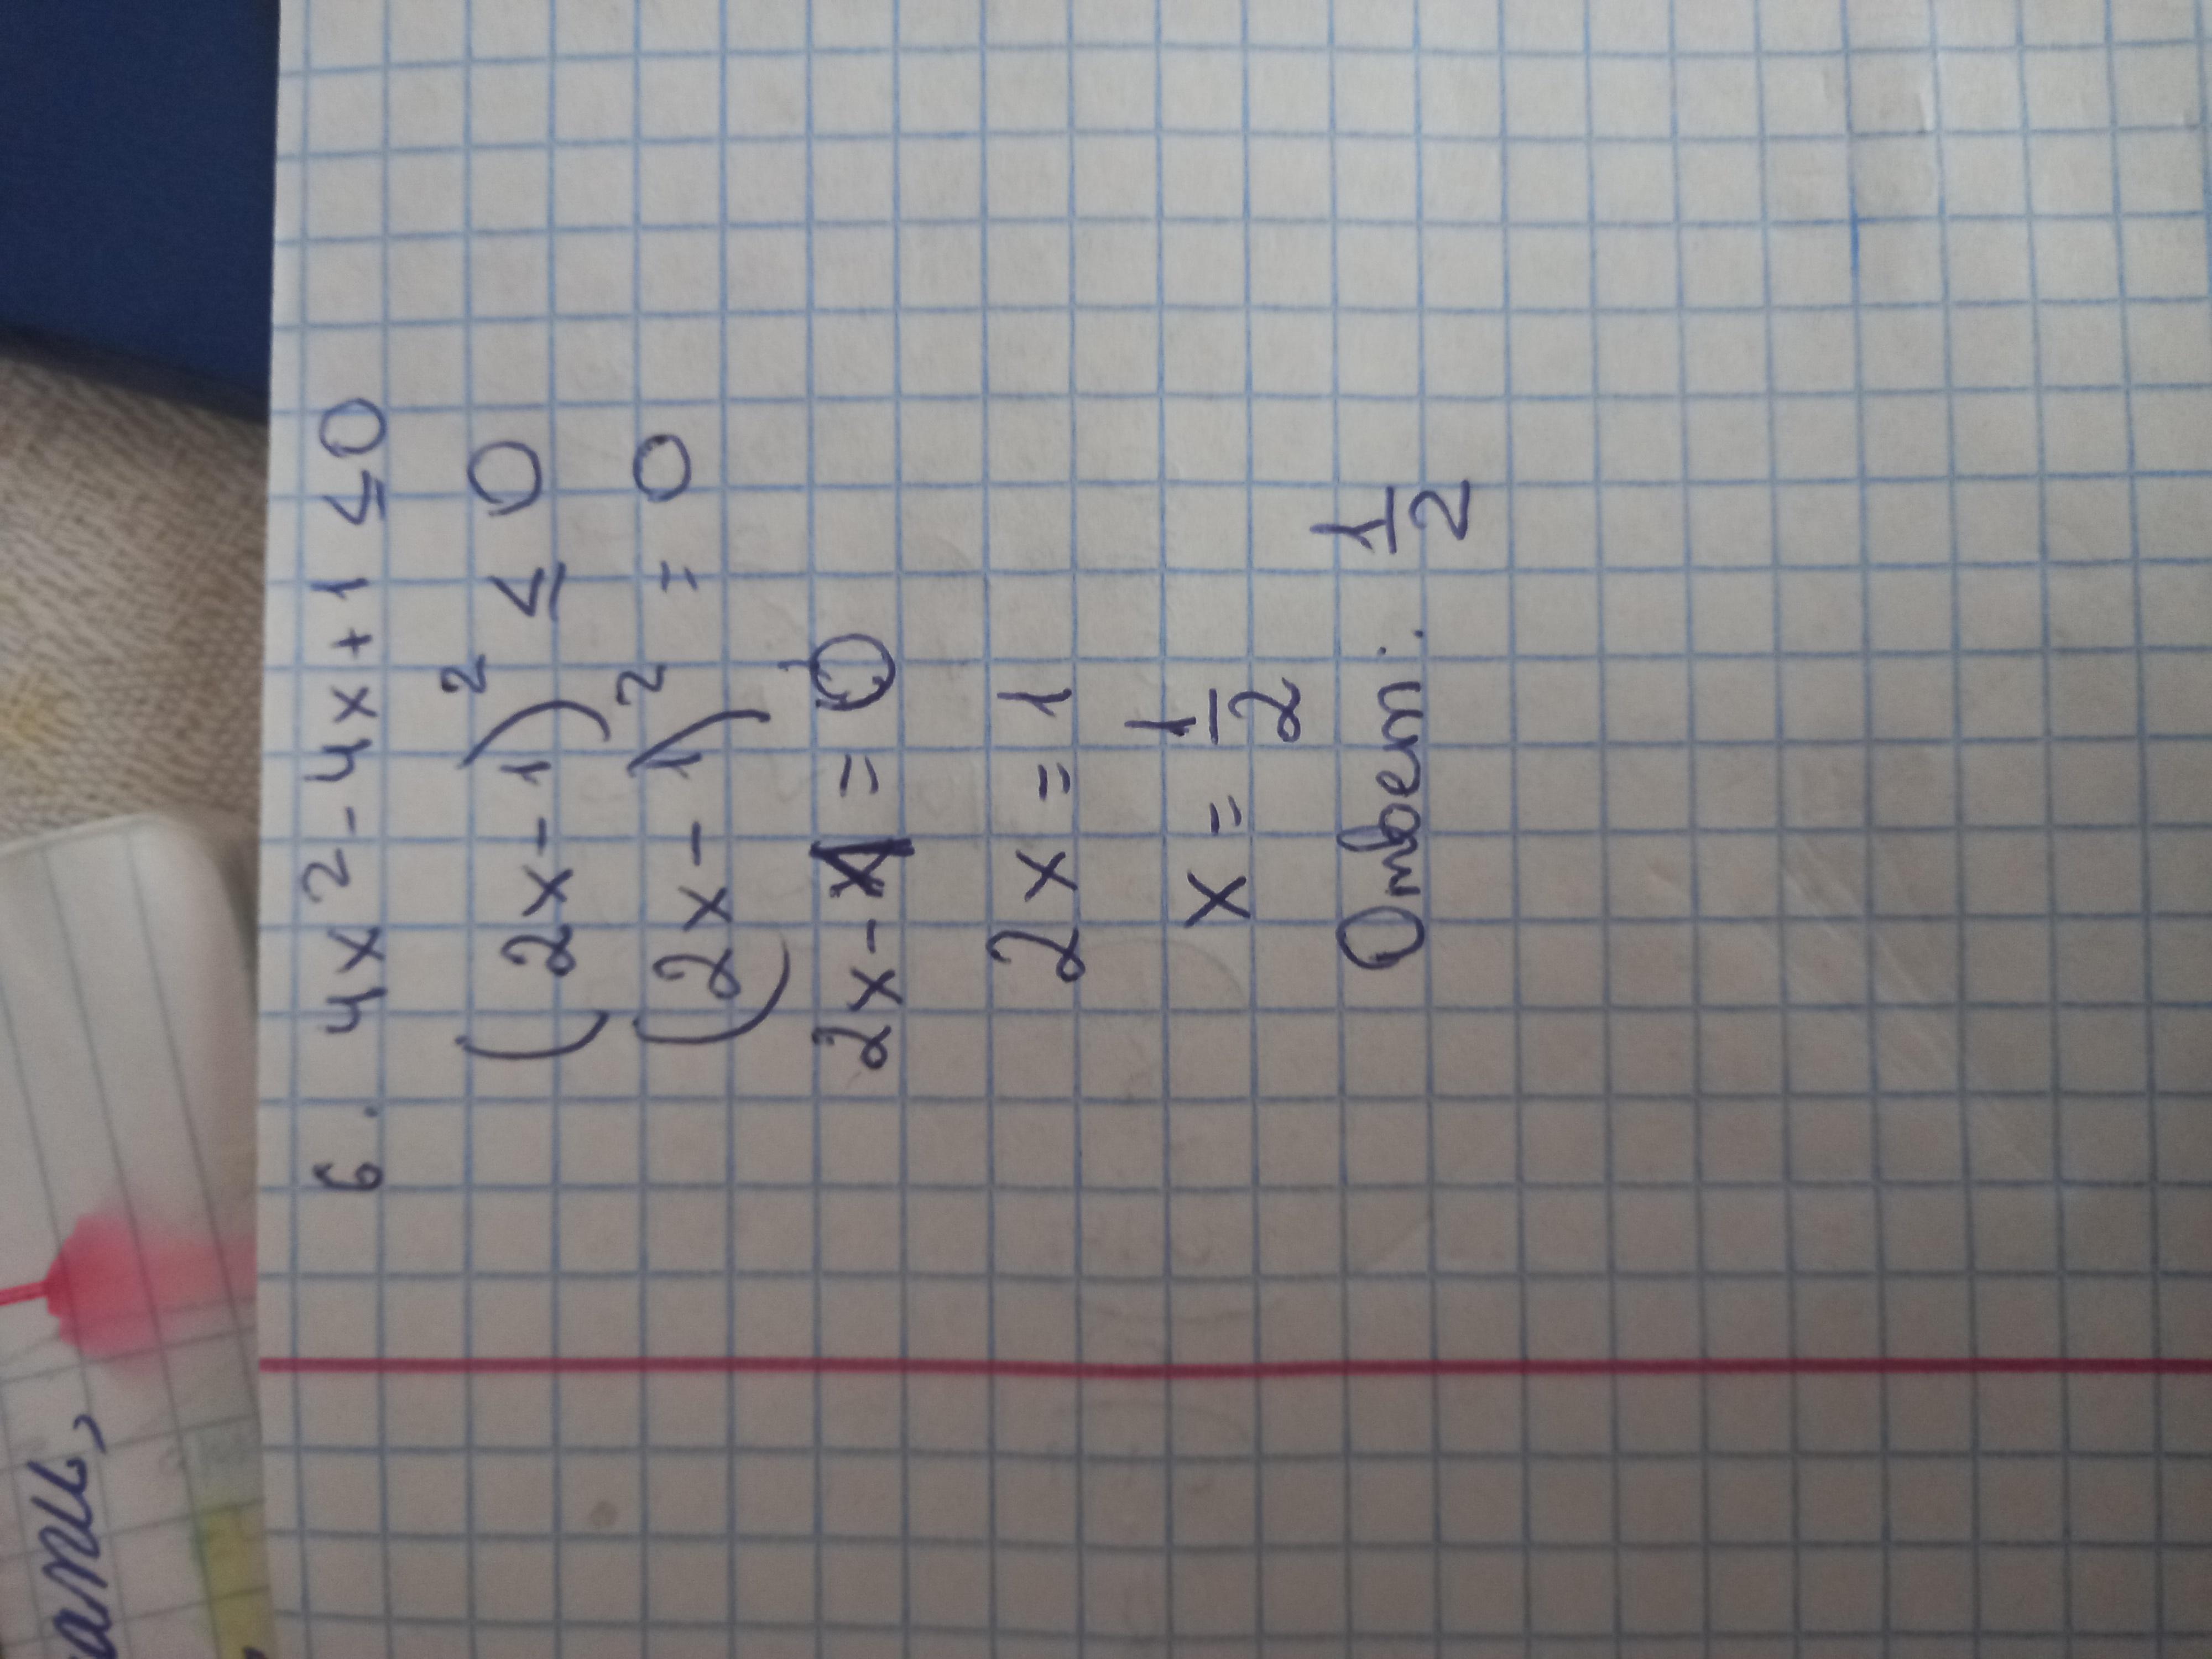 6. 4x² - 4x + 1 ≤ 0
(2x - 1)² ≤ 0
(2x - 1)² = 0
2x - 1 = 0
2x = 1
x = 1/2
Ответ: 1/2